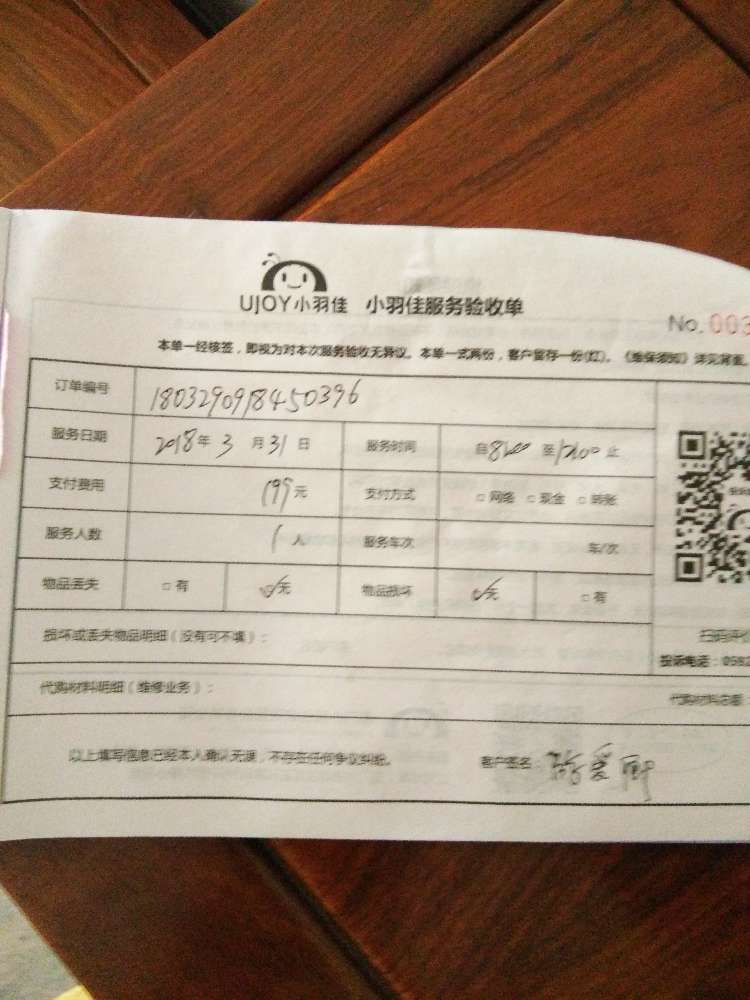 UJOY小羽佳 小羽佳服务验收单
No.003
本单一经核签，即视为对本次服务验收无异议。本单一式两份，客户留存一份(红)。《维保须知》详见背面。
订单编号 180329091845039​6
服务日期 2018年3月31日 服务时间 自8:00至12:00止
支付费用 199元 支付方式 □网络 □现金 □转账
服务人数 1人 服务车次 车/次
物品丢失 □有 ☑无 物品损坏 ☑无 □有
扫码评价
损坏或丢失物品明细（没有可不填）：
投诉电话：0592
代购材料明细（维修业务）：
代购材料总额
以上填写信息已经本人确认无误，不存在任何争议纠纷。 客户签名：爱卿